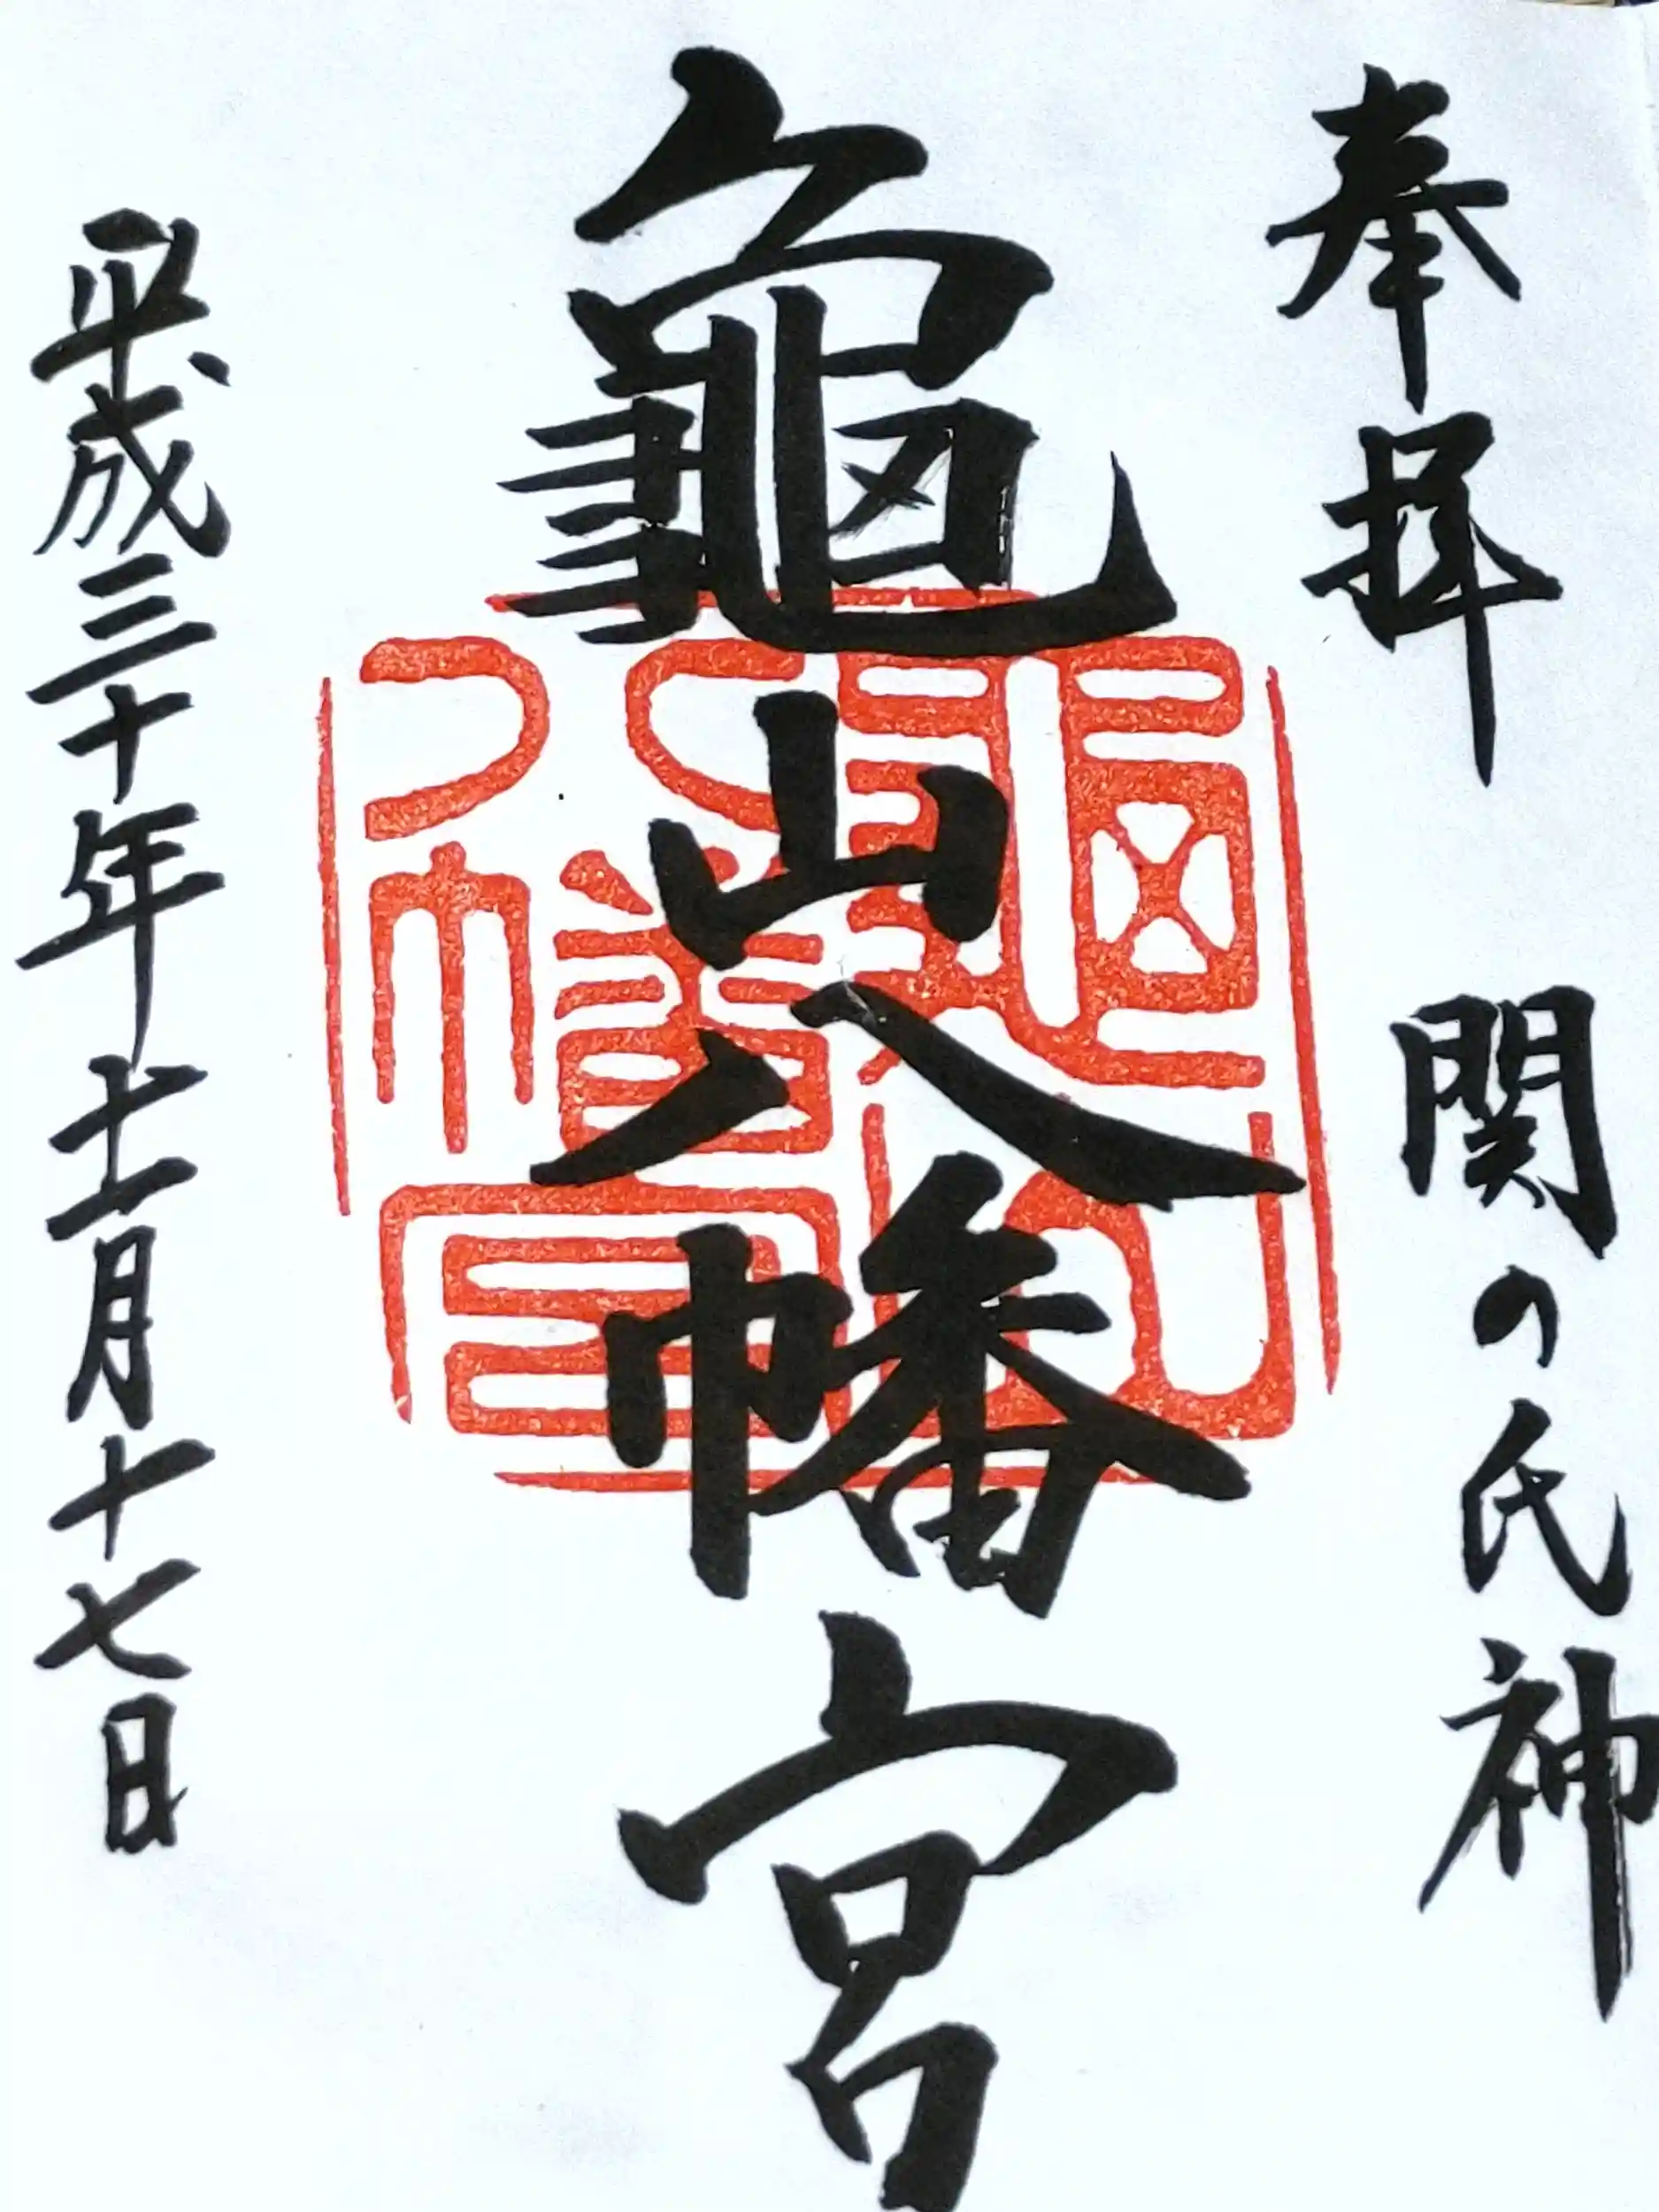 奉拝　関の氏神
龜山八幡宮
平成三十年十一月十七日
龜山
八幡宮